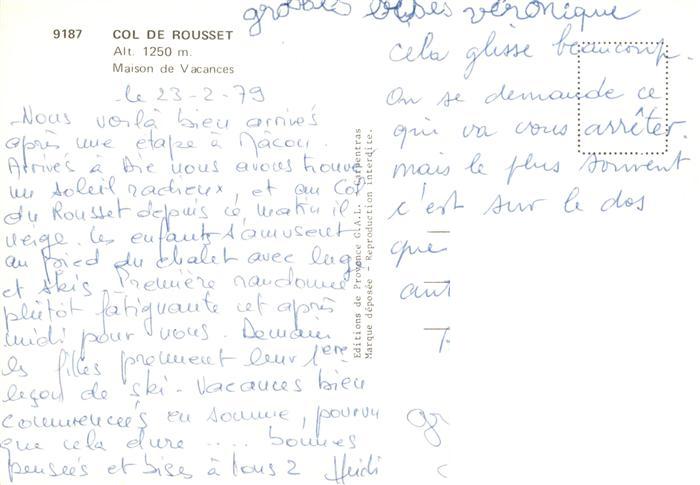 grosses bises véronique
9187 COL DE ROUSSET
Alt. 1250 m.
Maison de Vacances
le 23-2-79
Nous voilà bien arrivés
après une étape à Mâcon.
Arrivés à Die nous avons trouvé
un soleil radieux, et au Col
du Rousset depuis ce matin il
neige. les enfants s'amusent
au pied du chalet avec luge
et skis. Première randonnée
plutôt fatiguante cet après
midi pour nous. Demain
les filles prennent leur 1ère
leçon de ski - Vacances bien
commencées en somme, pourvu
que cela dure .... bonnes
pensées et bises à tous 2 Heidi
Editions de Provence C.A.L. - Carpentras
Marque déposée - Reproduction interdite.
cela glisse beaucoup.
On se demande ce
qui va vous arrêter.
mais le plus souvent
c'est sur le dos
que